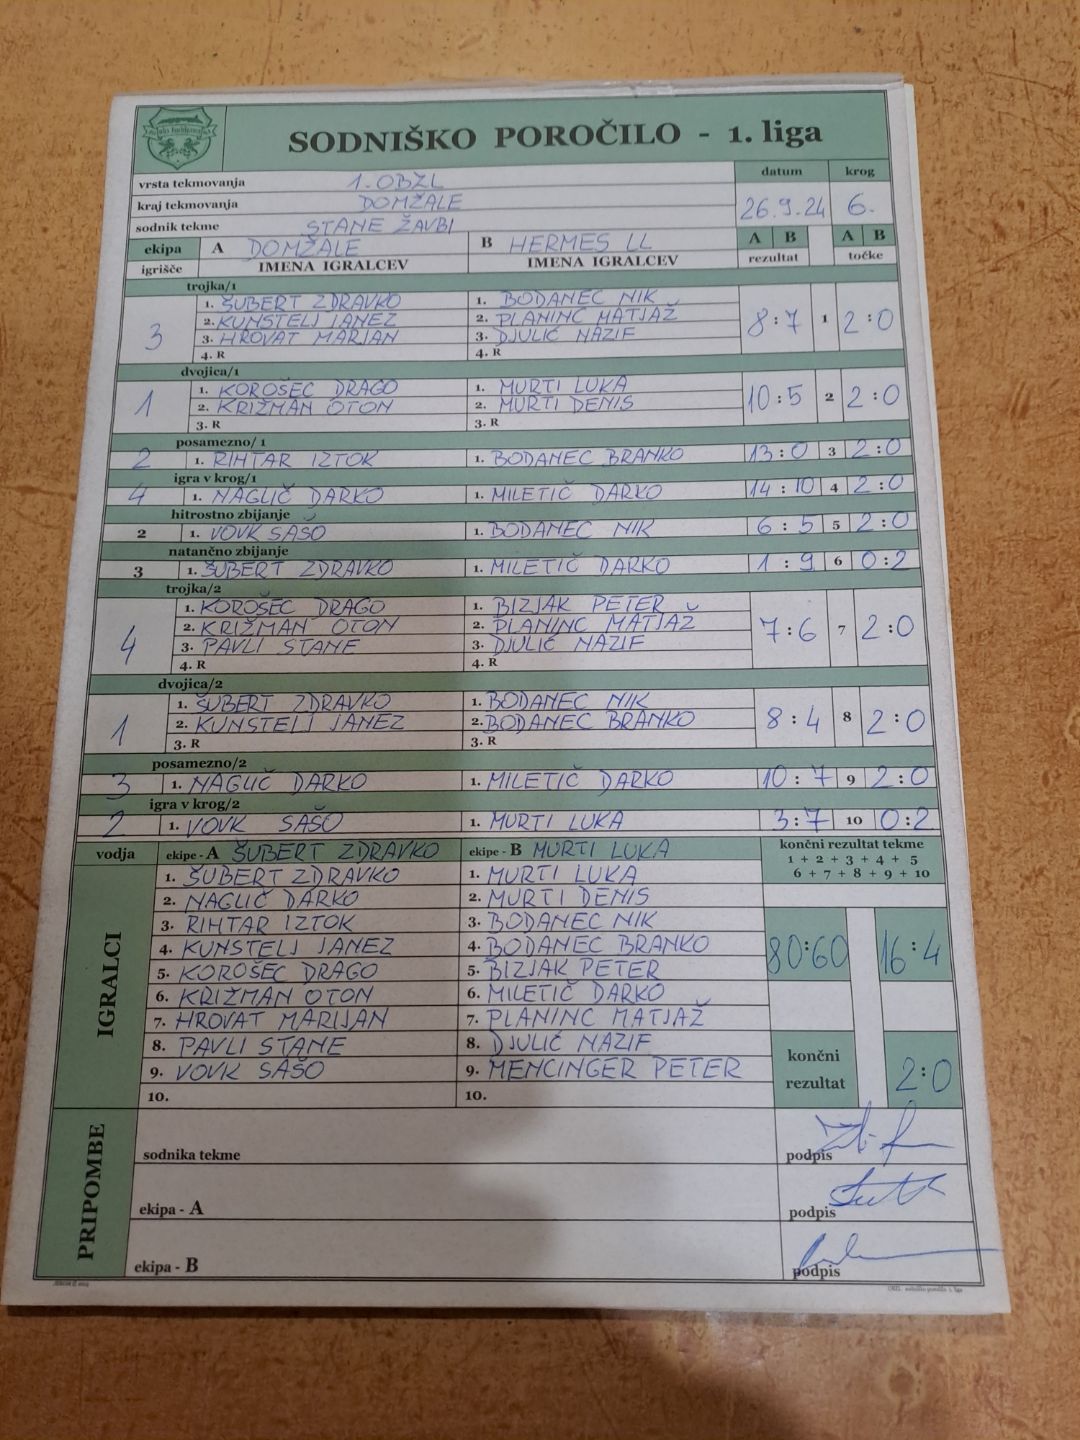 SODNIŠKO POROČILO - 1. liga
vrsta tekmovanja 1. OBZL datum krog
kraj tekmovanja DOMŽALE 26.9.24 6.
sodnik tekme STANE ŽAVBI
ekipa A DOMŽALE B HERMES LL A B A B
igrišče IMENA IGRALCEV IMENA IGRALCEV rezultat točke
trojka/1
1. ŠUBERT ZDRAVKO 1. BODANEC NIK
2. KUNSTELJ JANEZ 2. PLANINC MATJAŽ
3 3. HROVAT MARJAN 3. DJULIĆ NAZIF 8:7 1 2:0
4. R 4. R
dvojica/1
1. KOROŠEC DRAGO 1. MURTI LUKA
1 2. KRIŽMAN OTON 2. MURTI DENIS 10:5 2 2:0
3. R 3. R
posamezno/ 1
2 1. RIHTAR IZTOK 1. BODANEC BRANKO 13:0 3 2:0
igra v krog/1
4 1. NAGLIČ DARKO 1. MILETIČ DARKO 14:10 4 2:0
hitrostno zbijanje
2 1. VOVK SAŠO 1. BODANEC NIK 6:5 5 2:0
natančno zbijanje
3 1. ŠUBERT ZDRAVKO 1. MILETIČ DARKO 1:9 6 0:2
trojka/2
1. KOROŠEC DRAGO 1. BIZJAK PETER
2. KRIŽMAN OTON 2. PLANINC MATJAŽ
4 3. PAVLI STANE 3. DJULIĆ NAZIF 7:6 7 2:0
4. R 4. R
dvojica/2
1. ŠUBERT ZDRAVKO 1. BODANEC NIK
1 2. KUNSTELJ JANEZ 2. BODANEC BRANKO 8:4 8 2:0
3. R 3. R
posamezno/2
3 1. NAGLIČ DARKO 1. MILETIČ DARKO 10:7 9 2:0
igra v krog/2
2 1. VOVK SAŠO 1. MURTI LUKA 3:7 10 0:2
vodja ekipe - A ŠUBERT ZDRAVKO ekipe - B MURTI LUKA končni rezultat tekme
1 + 2 + 3 + 4 + 5
6 + 7 + 8 + 9 + 10
IGRALCI
1. ŠUBERT ZDRAVKO 1. MURTI LUKA
2. NAGLIČ DARKO 2. MURTI DENIS
3. RIHTAR IZTOK 3. BODANEC NIK
4. KUNSTELJ JANEZ 4. BODANEC BRANKO 80:60 16:4
5. KOROŠEC DRAGO 5. BIZJAK PETER
6. KRIŽMAN OTON 6. MILETIČ DARKO
7. HROVAT MARIJAN 7. PLANINC MATJAŽ
8. PAVLI STANE 8. DJULIĆ NAZIF končni
9. VOVK SAŠO 9. MENCINGER PETER rezultat 2:0
10. 10.
PRIPOMBE
sodnika tekme podpis
ekipa - A podpis
ekipa - B podpis